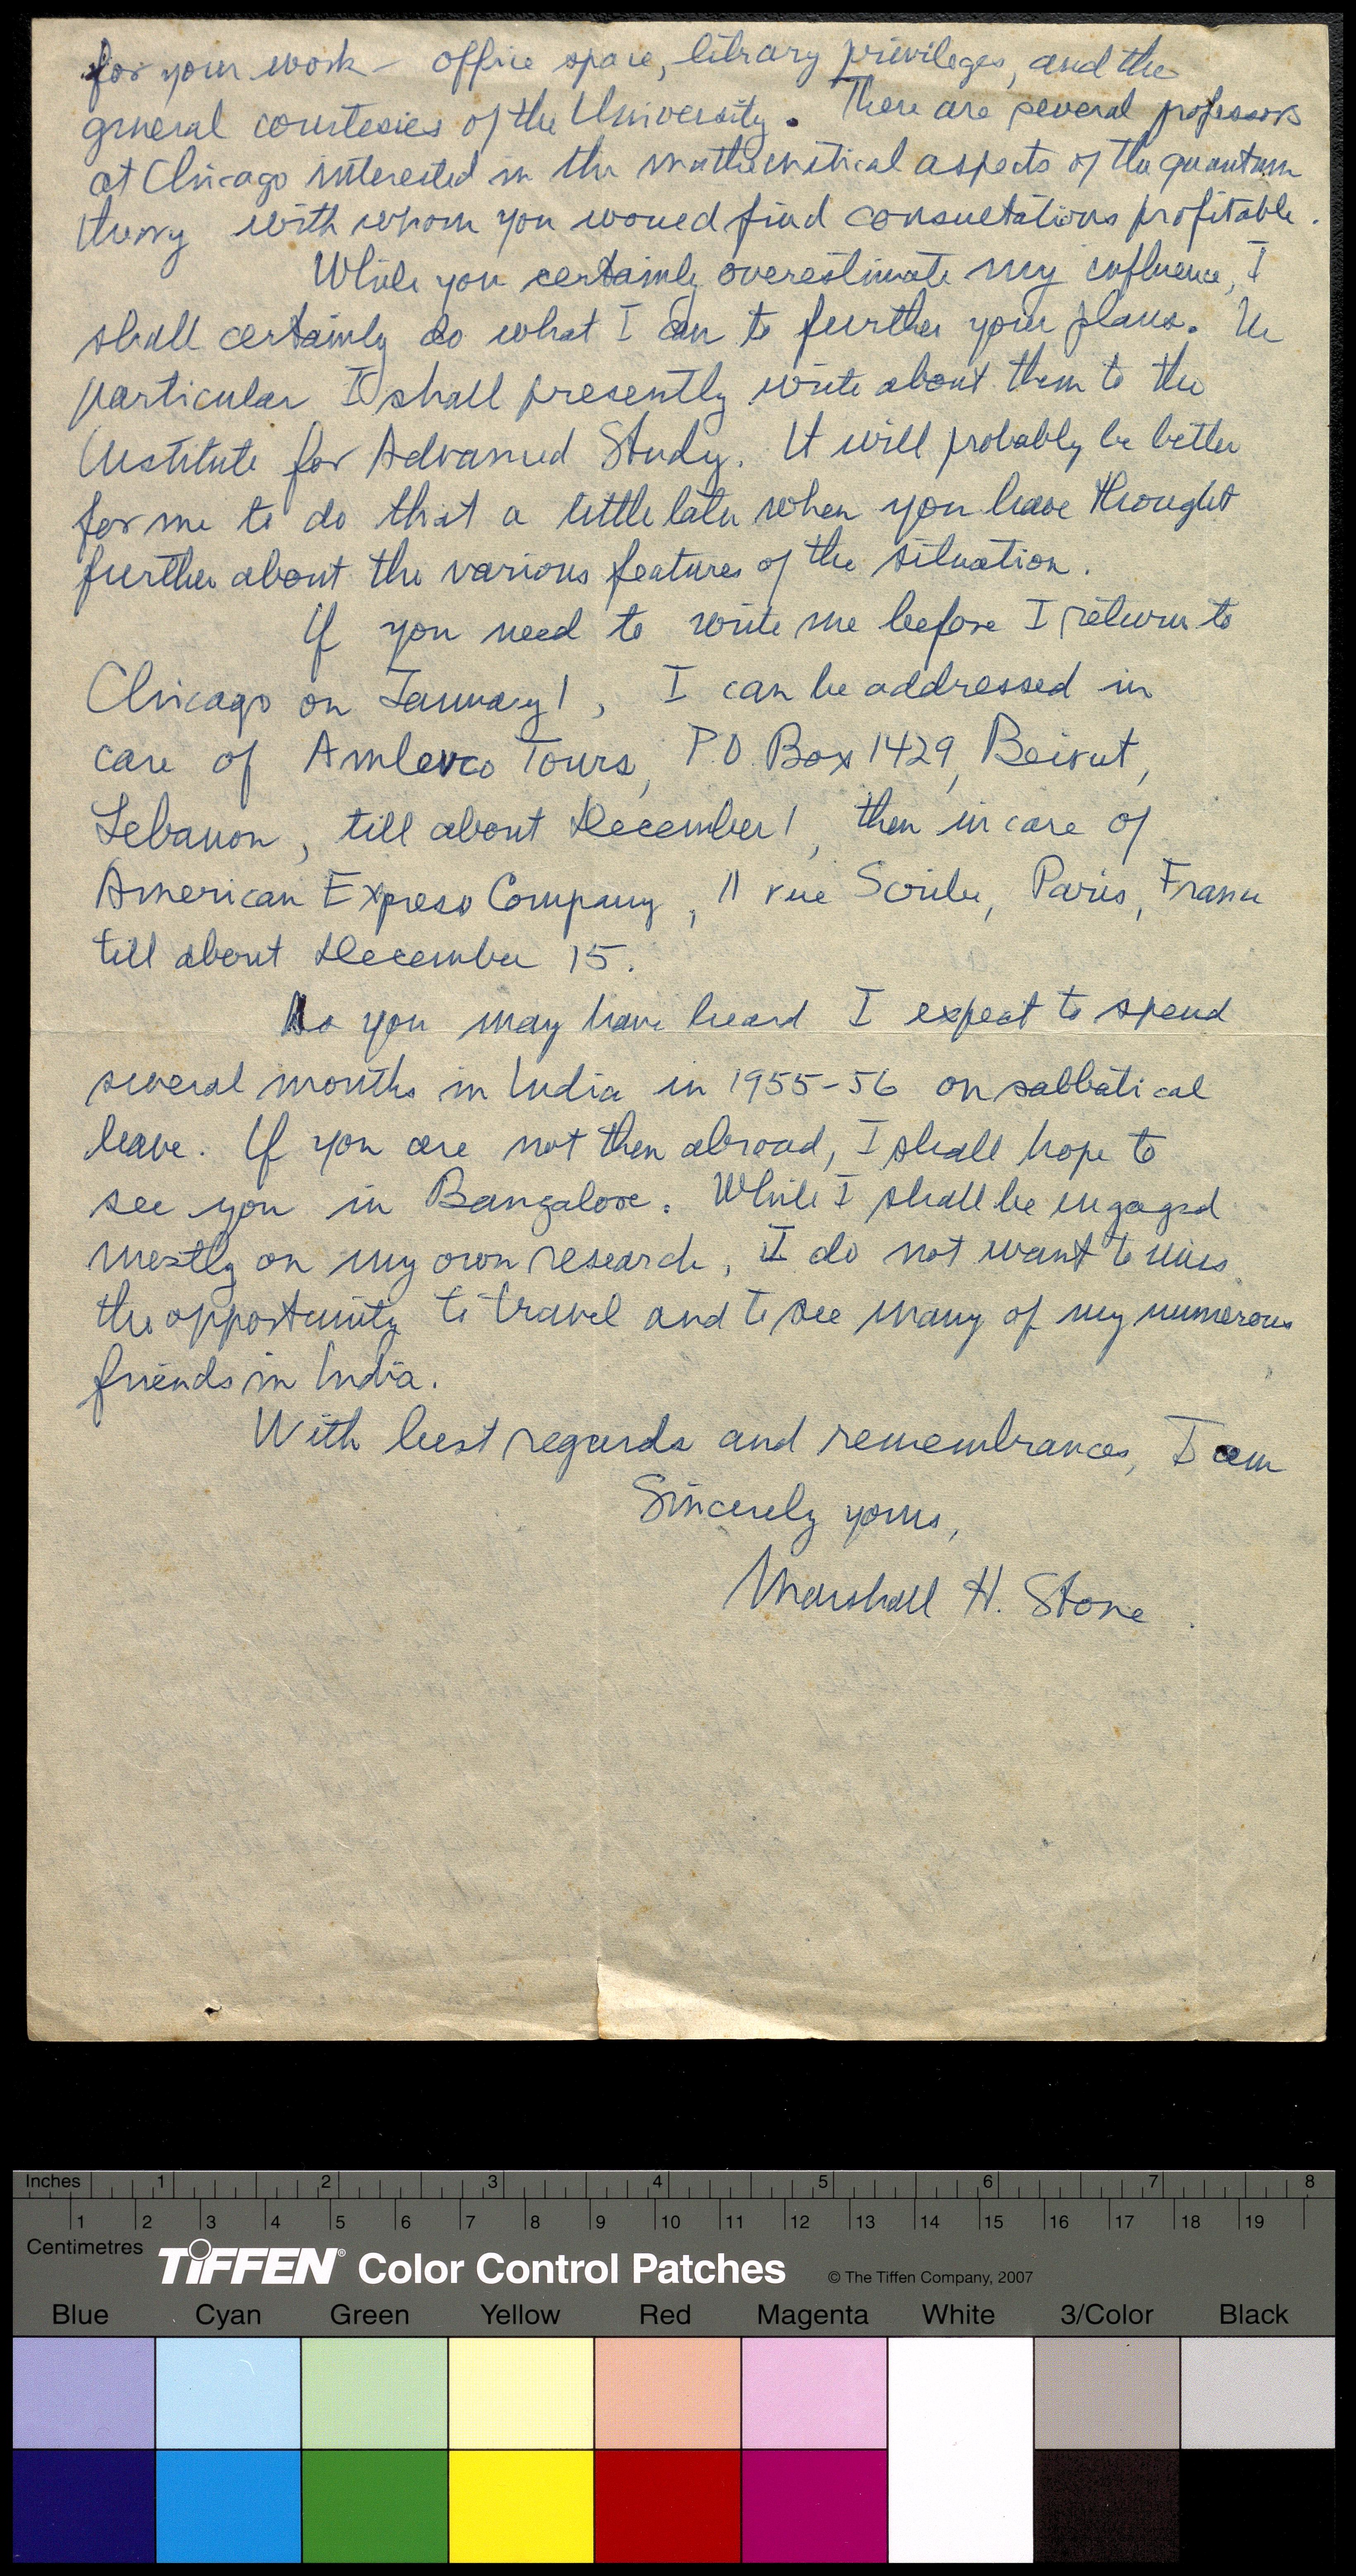 for your work – office space, library privileges, and the
general courtesies of the University. There are several professors
at Chicago interested in the mathematical aspects of the quantum
theory with whom you would find consultations profitable.
While you certainly overestimate my influence, I
shall certainly do what I can to further your plans. In
particular I shall presently write about them to the
Institute for Advanced Study. It will probably be better
for me to do that a little later when you have thought
further about the various features of the situation.
If you need to write me before I return to
Chicago on January 1, I can be addressed in
care of Amlevco Tours, P.O. Box 1429, Beirut,
Lebanon, till about December 1, then in care of
American Express Company, 11 rue Scribe, Paris, France
till about December 15.
As you may have heard I expect to spend
several months in India in 1955-56 on sabbatical
leave. If you are not then abroad, I shall hope to
see you in Bangalore. While I shall be engaged
mostly on my own research, I do not want to miss
the opportunity to travel and to see many of my numerous
friends in India.
With best regards and remembrances, I am
Sincerely yours,
Marshall H. Stone
Inches 1 2 3 4 5 6 7 8
1 2 3 4 5 6 7 8 9 10 11 12 13 14 15 16 17 18 19
Centimetres
TIFFEN® Color Control Patches © The Tiffen Company, 2007
Blue Cyan Green Yellow Red Magenta White 3/Color Black